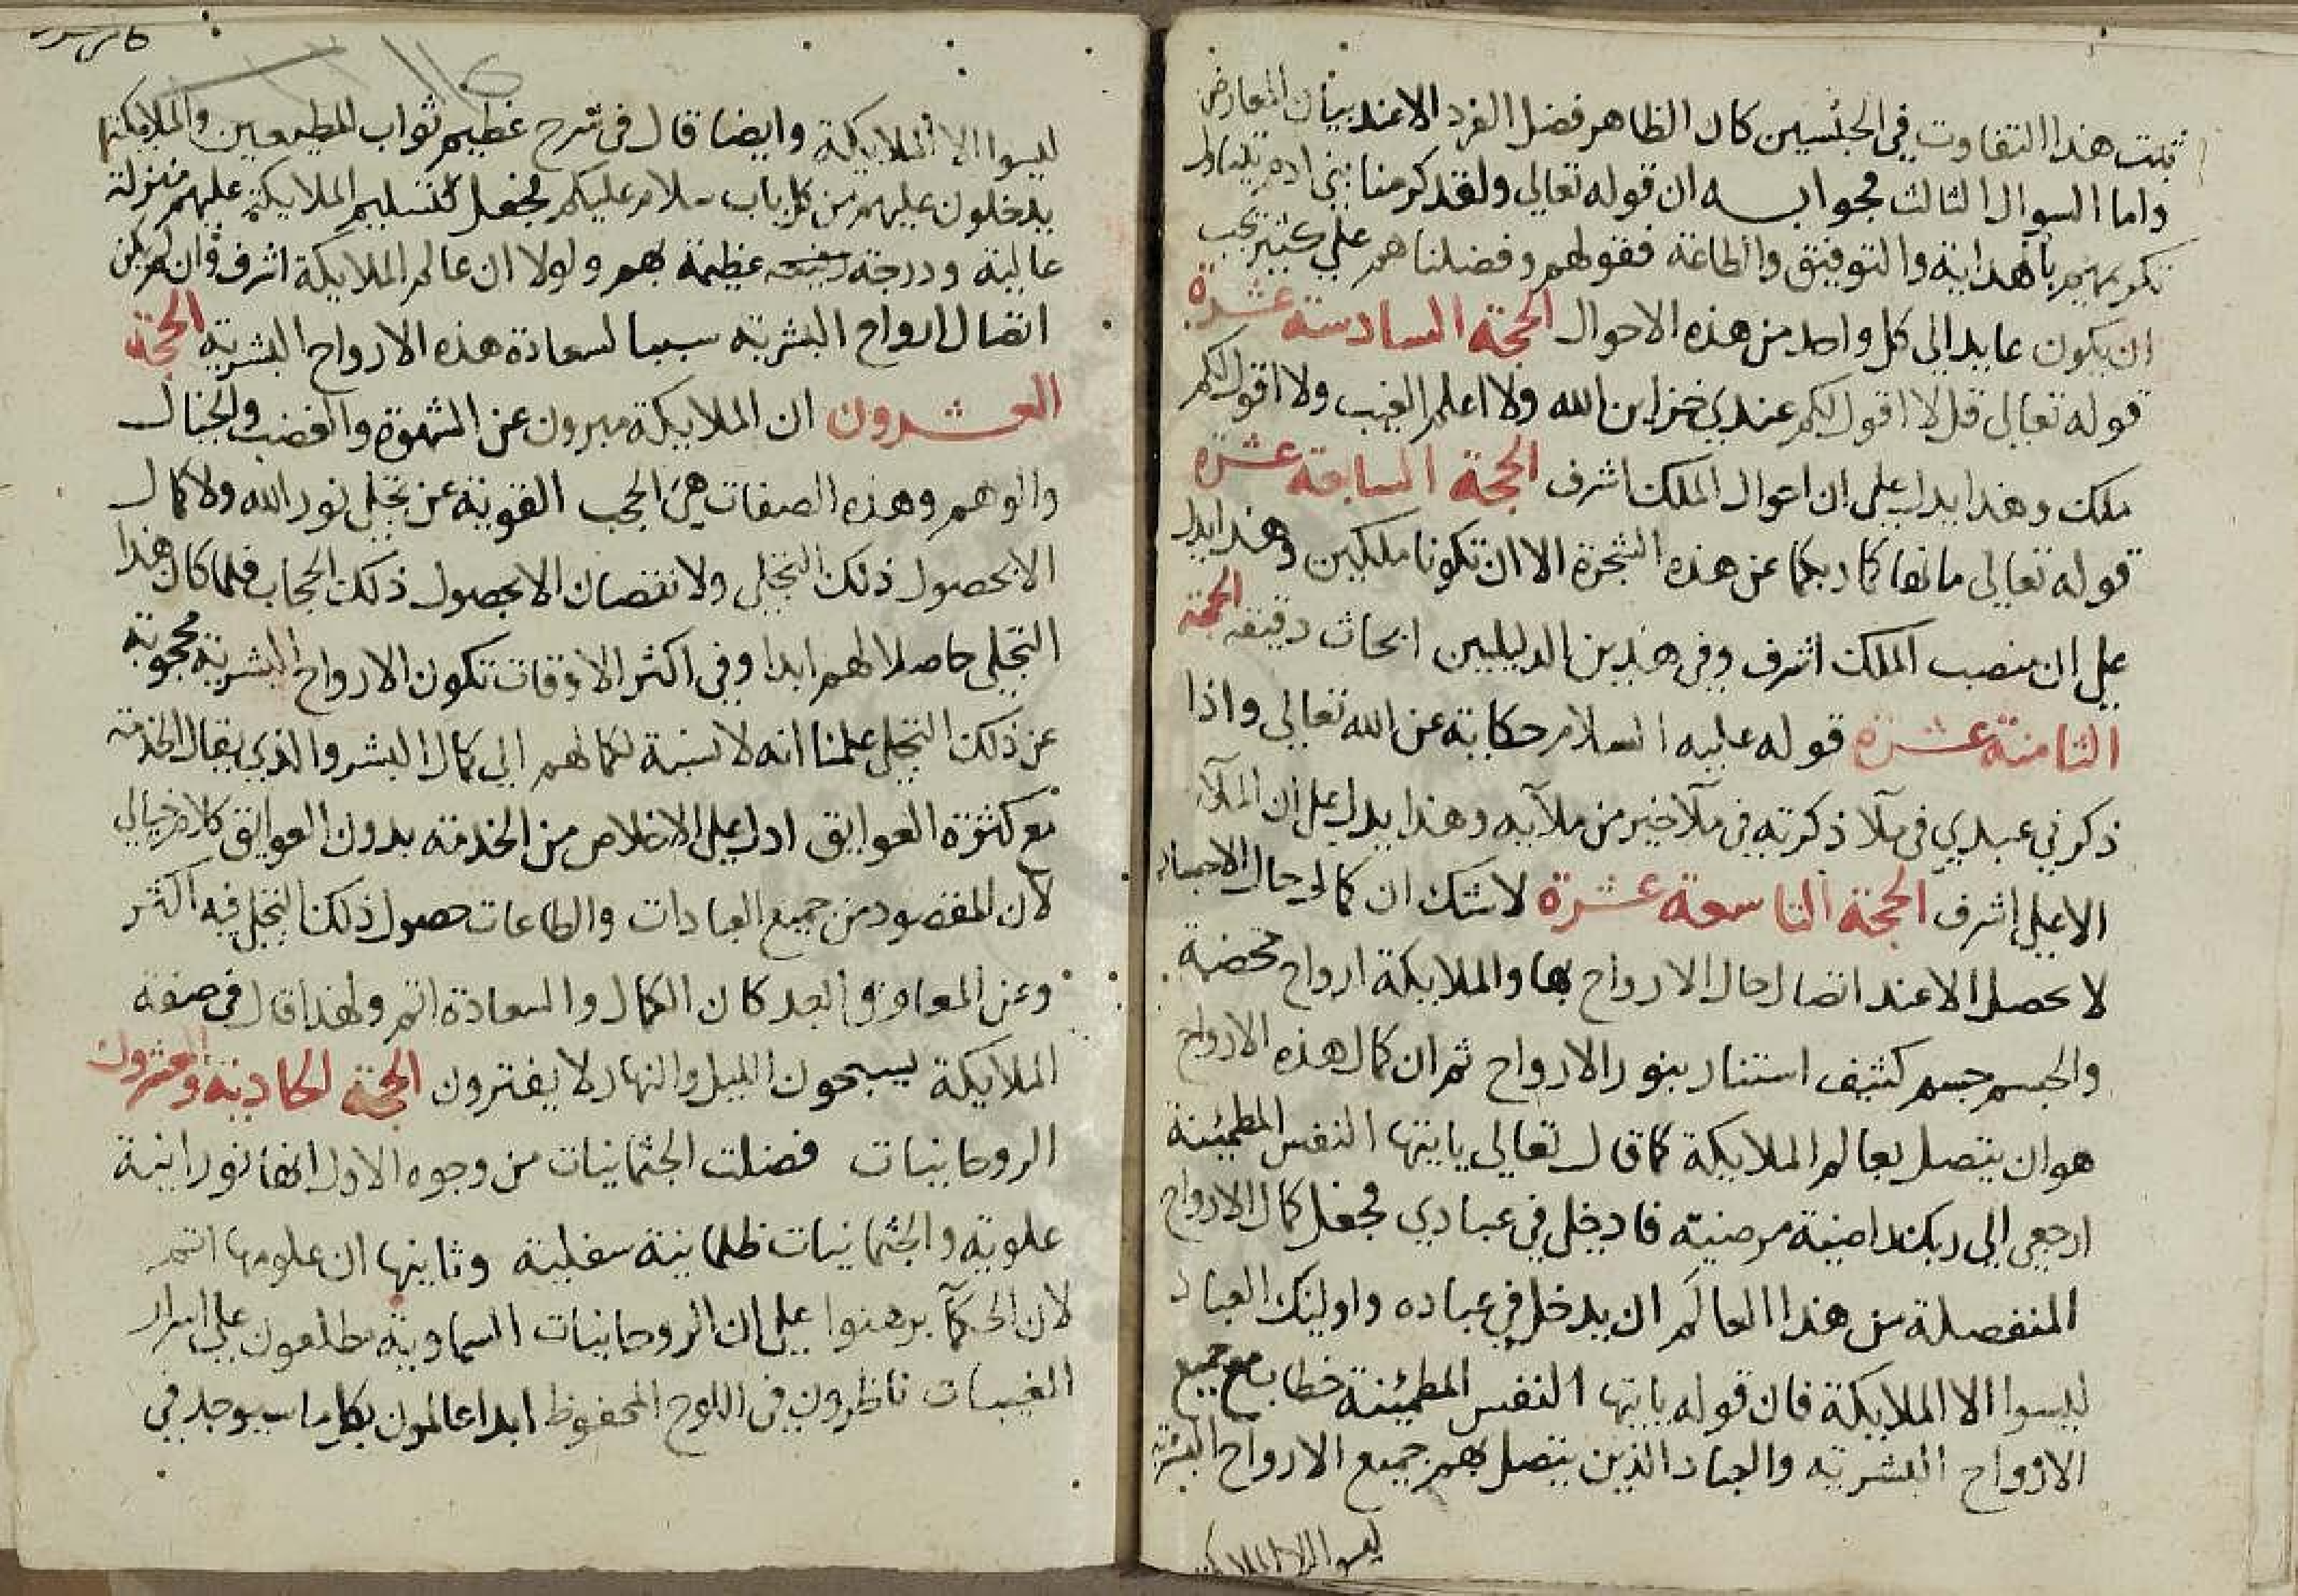 ثبت هذا التفاوت في الجنسين كان الظاهر فضل الفرد الا عند بيان المعارض
واما السوال الثالث فجوابه ان قوله تعالي ولقد كرمنا بني ادم يتناول
تكريمهم بالهداية والتوفيق والطاعة فقولهم وفضلناهم علي كثير يجب
ان يكون عايدا لي كل واحد من هذه الاحوال الحجة السادسة عشرة
قوله تعالي قل لا اقول لكم عندي خزاين الله ولا اعلم الغيب ولا اقول لكم
ملك وهذا يدل علي ان احوال الملك اشرف الحجة السابعة عشرة
قوله تعالي ما نهاكما ربكما عن هذه الشجرة الا ان تكونا ملكين وهذا يدل
علي ان منصب الملك اشرف وفي هذين الدليلين ابحاث دقيقه الحجة
الثامنة عشرة قوله عليه السلام حكاية عن الله تعالي واذا
ذكرني عبدي في ملآ ذكرته في ملآ خير من ملآيه وهذا يدل علي ان الملآ
الاعلي اشرف الحجة التاسعة عشرة لا شك ان كمال حال الاجساد
لا يحصل الا عند اتصال حال الارواح بها والملايكة ارواح محضة
والجسم جسم كثيف استنار بنور الارواح ثم ان كمال هذه الارواح
هو ان يتصل بعالم الملايكة كما قال تعالي يايتها النفس المطمئنة
ارجعي الي ربك راضية مرضية فادخلي في عبادي فجعل كمال الارواح
المنفصلة من هذا العالم ان يدخل في عباده واوليك العباد
ليسوا الا الملايكة فان قوله يايتها النفس المطمئنة خطاب مع جميع
الارواح البشرية والعباد الذين يتصل بهم جميع الارواح البشرية
ليسوا الا الملايكة
ليسوا الا الملايكة وايضا قال في شرح عظيم ثواب المطيعين والملايكة
يدخلون عليهم من كل باب سلام عليكم فجعل لتسليم الملايكة عليهم منزلة
عالية ودرجة عظيمة بهم ولولا ان عالم الملايكة اشرف وان لم يكن
اتصال ارواح البشرية سببا لسعادة هذه الارواح البشرية الحجة
العشرون ان الملايكة مبرون عن الشهوة والغضب والخيال
والوهم وهذه الصفات هي الحجب القوية عن تجلي نور الله ولا كمال
الا بحصول ذلك التجلي ولا نقصان الا بحصول ذلك الحجاب فلما كان هذا
التجلي حاصلا لهم ابدا وفي اكثر الاوقات تكون الارواح البشرية محجوبة
عن ذلك التجلي علمنا انه لا نسبة لكمالهم الي كمال البشر والذي يقال الخدمة
مع كثرة العوايق ادل علي الاخلاص من الخدمة بدون العوايق كلام خيالي
لان المقصود من جميع العبادات والطاعات حصول ذلك التجلي فيه اكثر
وعن المعاوق ابعد كان الكمال والسعادة اتم ولهذا قال في صفة
الملايكة يسبحون الليل والنهار لا يفترون الحجة الحادية والعشرون
الروحانيات فضلت الجثمانيات من وجوه الاول انها نورانية
علوية والجثمانيات ظلمانية سفلية وثانيها ان علومها اتم
لان الحكمآ برهنوا علي ان الروحانيات السماوية مطلعون علي اسرار
المغيبات ناظرون في اللوح المحفوظ ابدا عالمون بكل ما سيوجد في